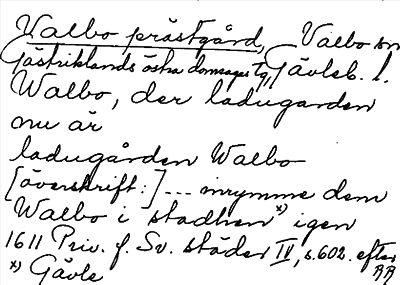 Valbo prästgård, Valbo sn
Gästriklands östra domsagas tg, Gävleb. l.
Walbo, der ladugården
nu är
ladugården Walbo
[överskrift:] ... inrymme dem
Walbo i stadhen *) igen
1611 Priv. f. Sv. städer IV, s. 602. efter
*) Gävle RR